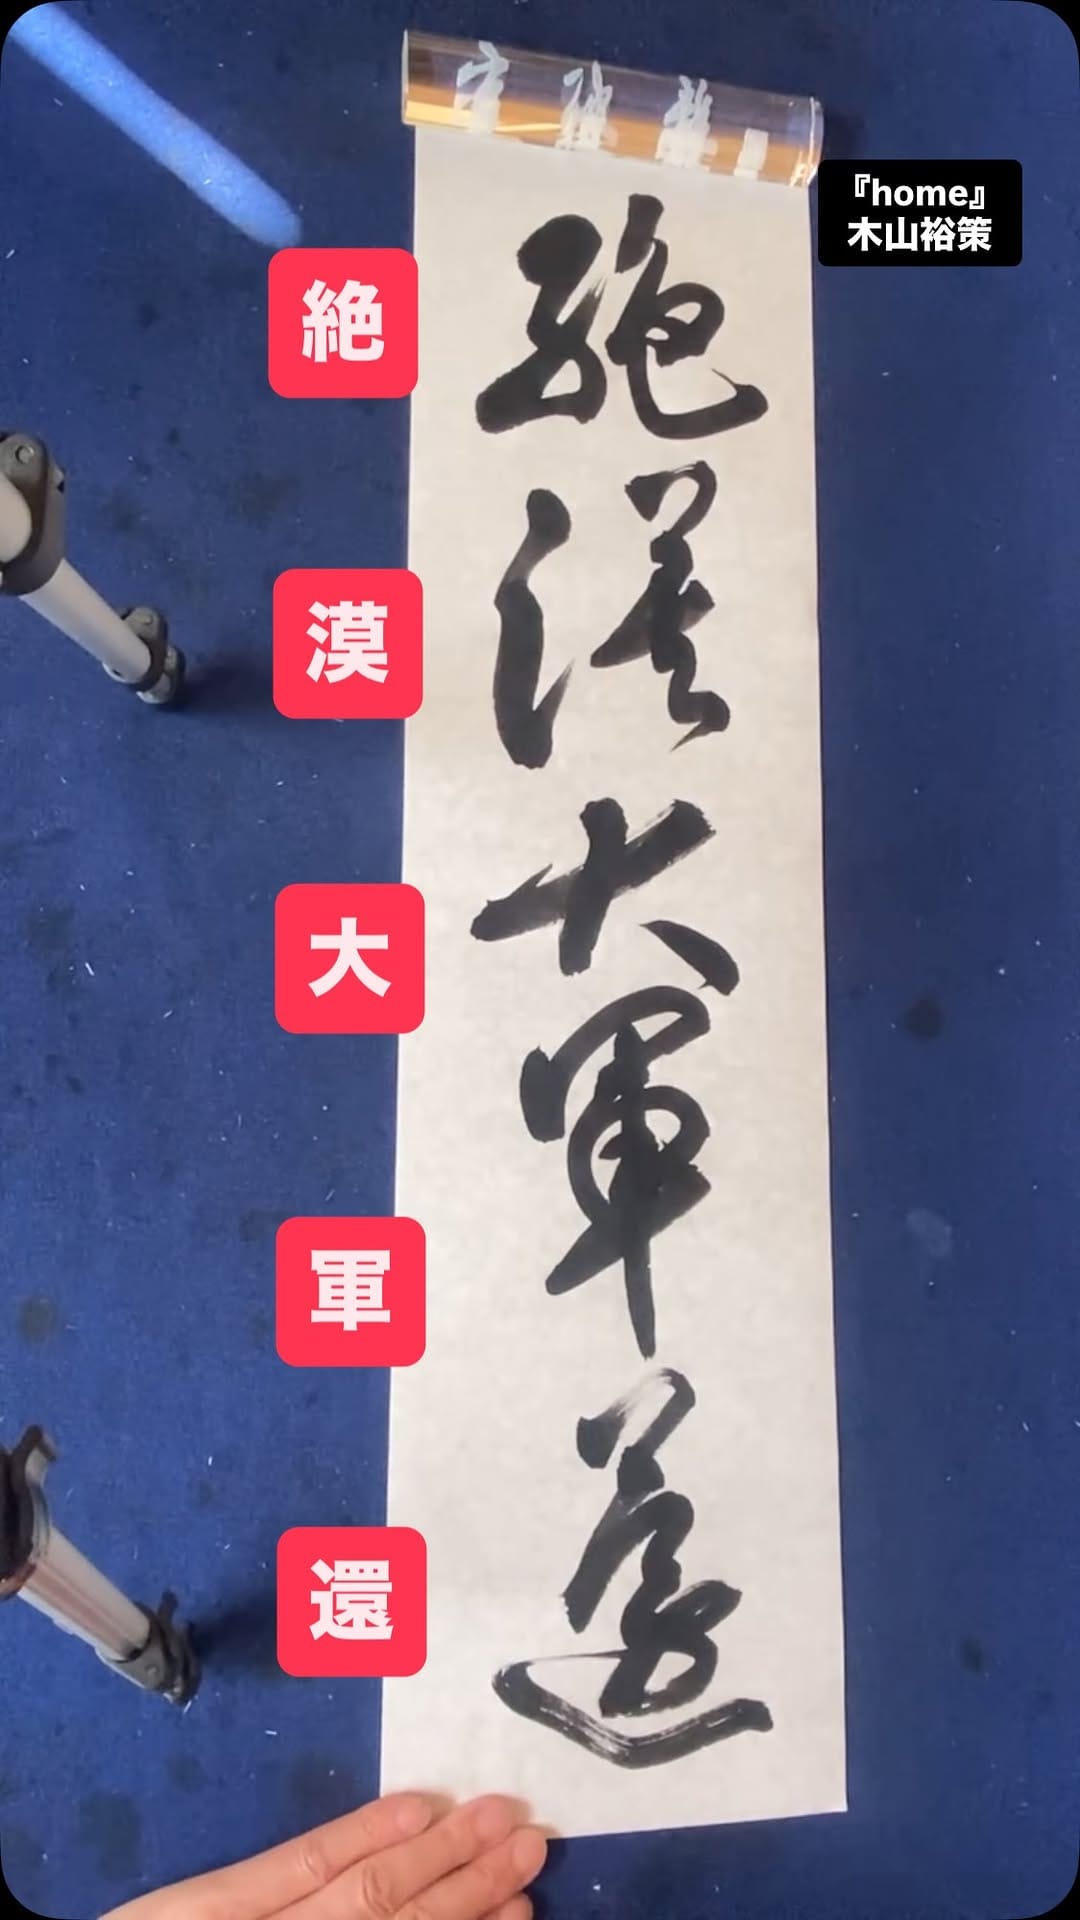 『home』
木山裕策
絶
漠
大
軍
還
絶漠大軍還